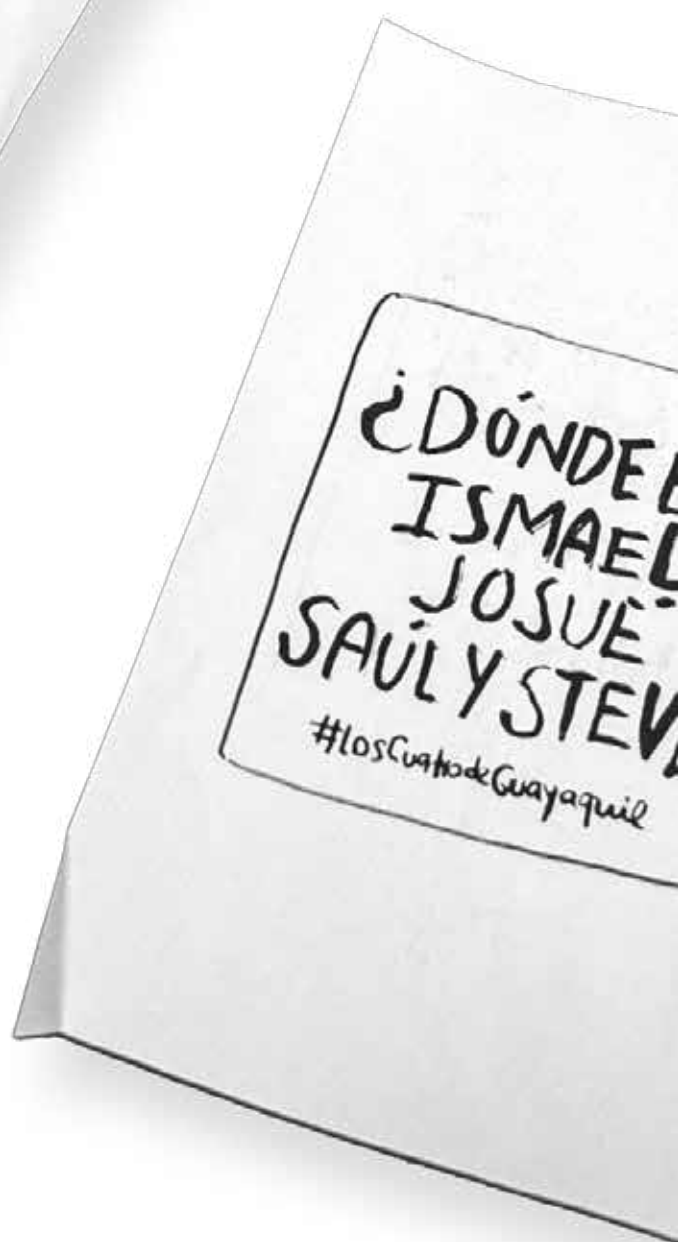 ¿DÓNDE E
ISMAEL
JOSUÉ
SAÚL Y STEV
#LosCuatrodeGuayaquil